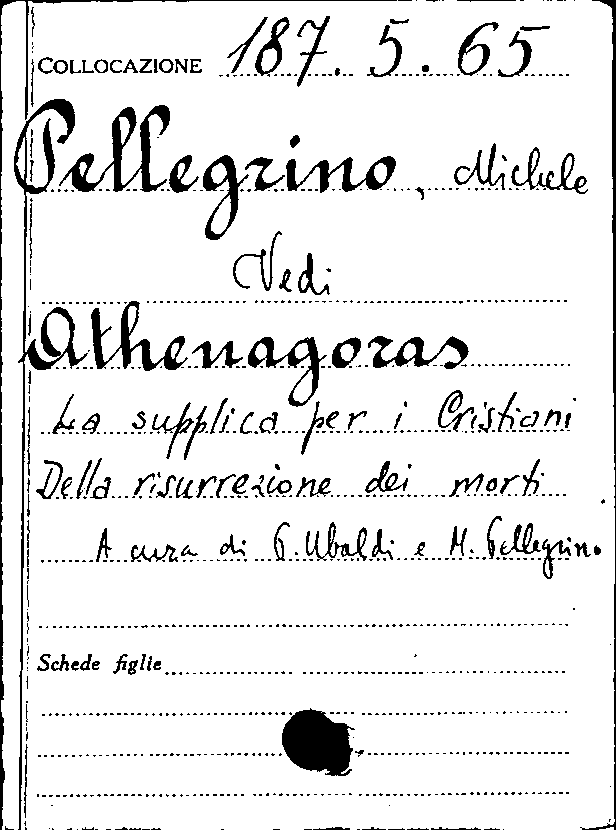 COLLOCAZIONE 187. 5. 65
Pellegrino, Michele
Vedi
Athenagoras
La supplica per i Cristiani
Della risurrezione dei morti
A cura di P. Ubaldi e M. Pellegrino
Schede figlie